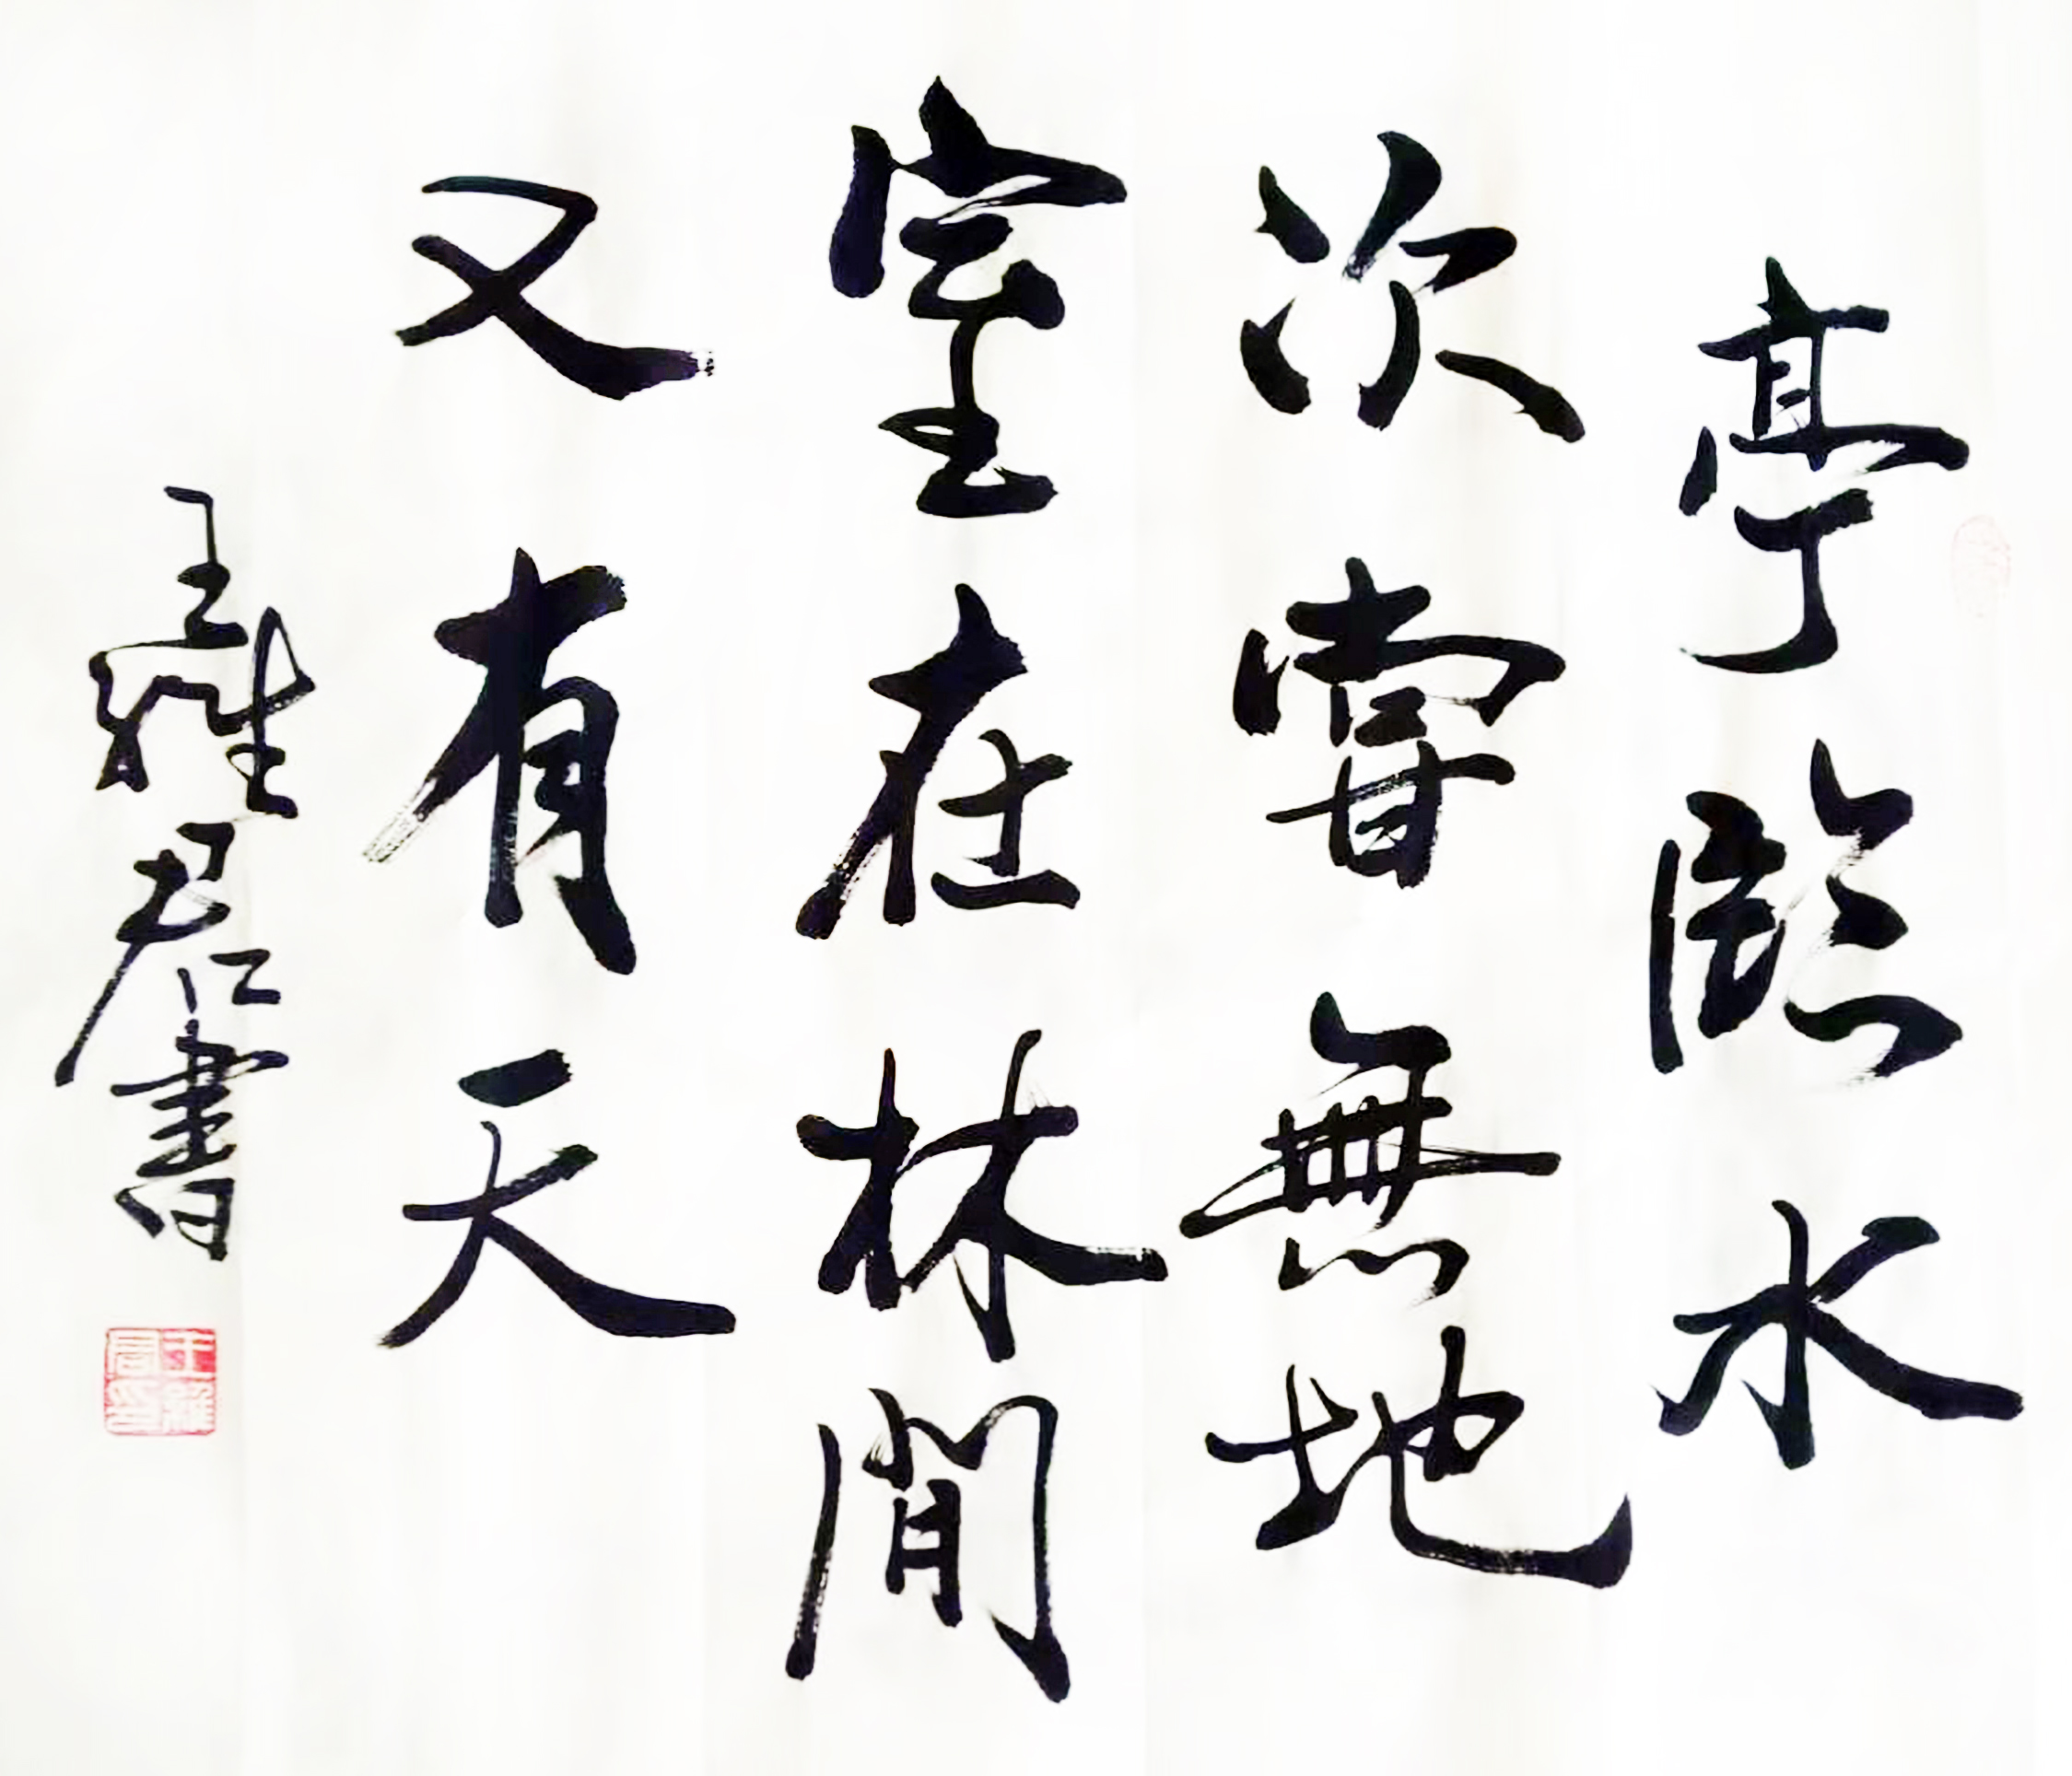 亭臨水
次甞無地
室在林閒
又有天
王維君書
王維君印